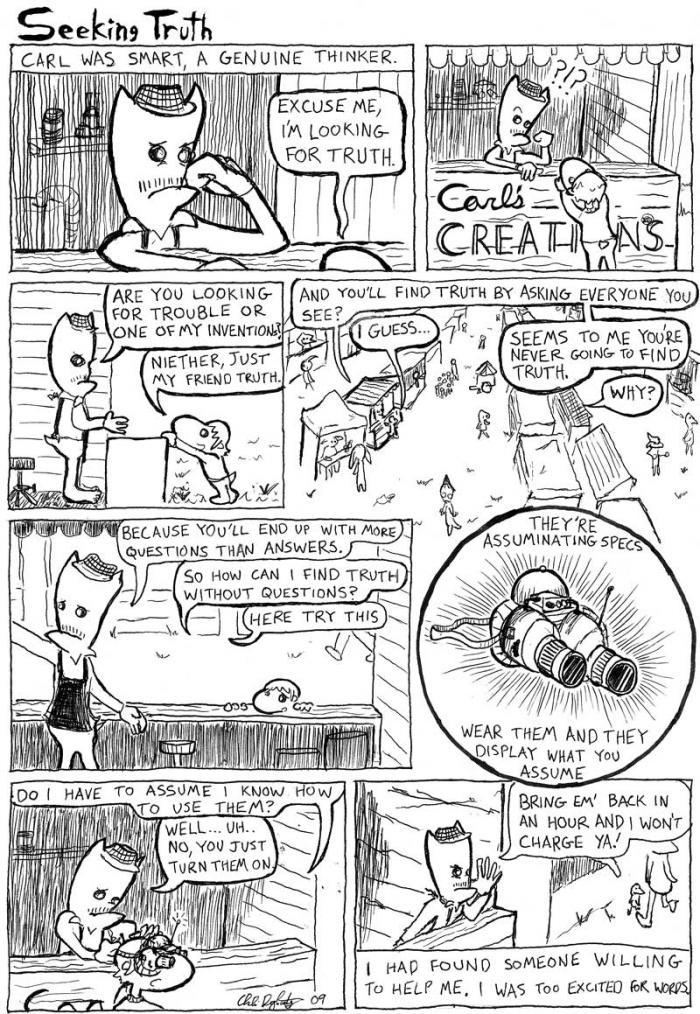 Seeking Truth
CARL WAS SMART, A GENUINE THINKER.
EXCUSE ME,
I'M LOOKING
FOR TRUTH.
?!?
Carl's
CREATI NS
ARE YOU LOOKING
FOR TROUBLE OR
ONE OF MY INVENTIONS?
NIETHER, JUST
MY FRIEND TRUTH.
AND YOU'LL FIND TRUTH BY ASKING EVERYONE YOU
SEE?
I GUESS...
SEEMS TO ME YOU'RE
NEVER GOING TO FIND
TRUTH.
WHY?
BECAUSE YOU'LL END UP WITH MORE
QUESTIONS THAN ANSWERS.
SO HOW CAN I FIND TRUTH
WITHOUT QUESTIONS?
HERE TRY THIS
THEY'RE
ASSUMINATING SPECS
WEAR THEM AND THEY
DISPLAY WHAT YOU
ASSUME
DO I HAVE TO ASSUME I KNOW HOW
TO USE THEM?
WELL... UH..
NO, YOU JUST
TURN THEM ON.
09
BRING EM' BACK IN
AN HOUR AND I WON'T
CHARGE YA!
I HAD FOUND SOMEONE WILLING
TO HELP ME. I WAS TOO EXCITED FOR WORDS.